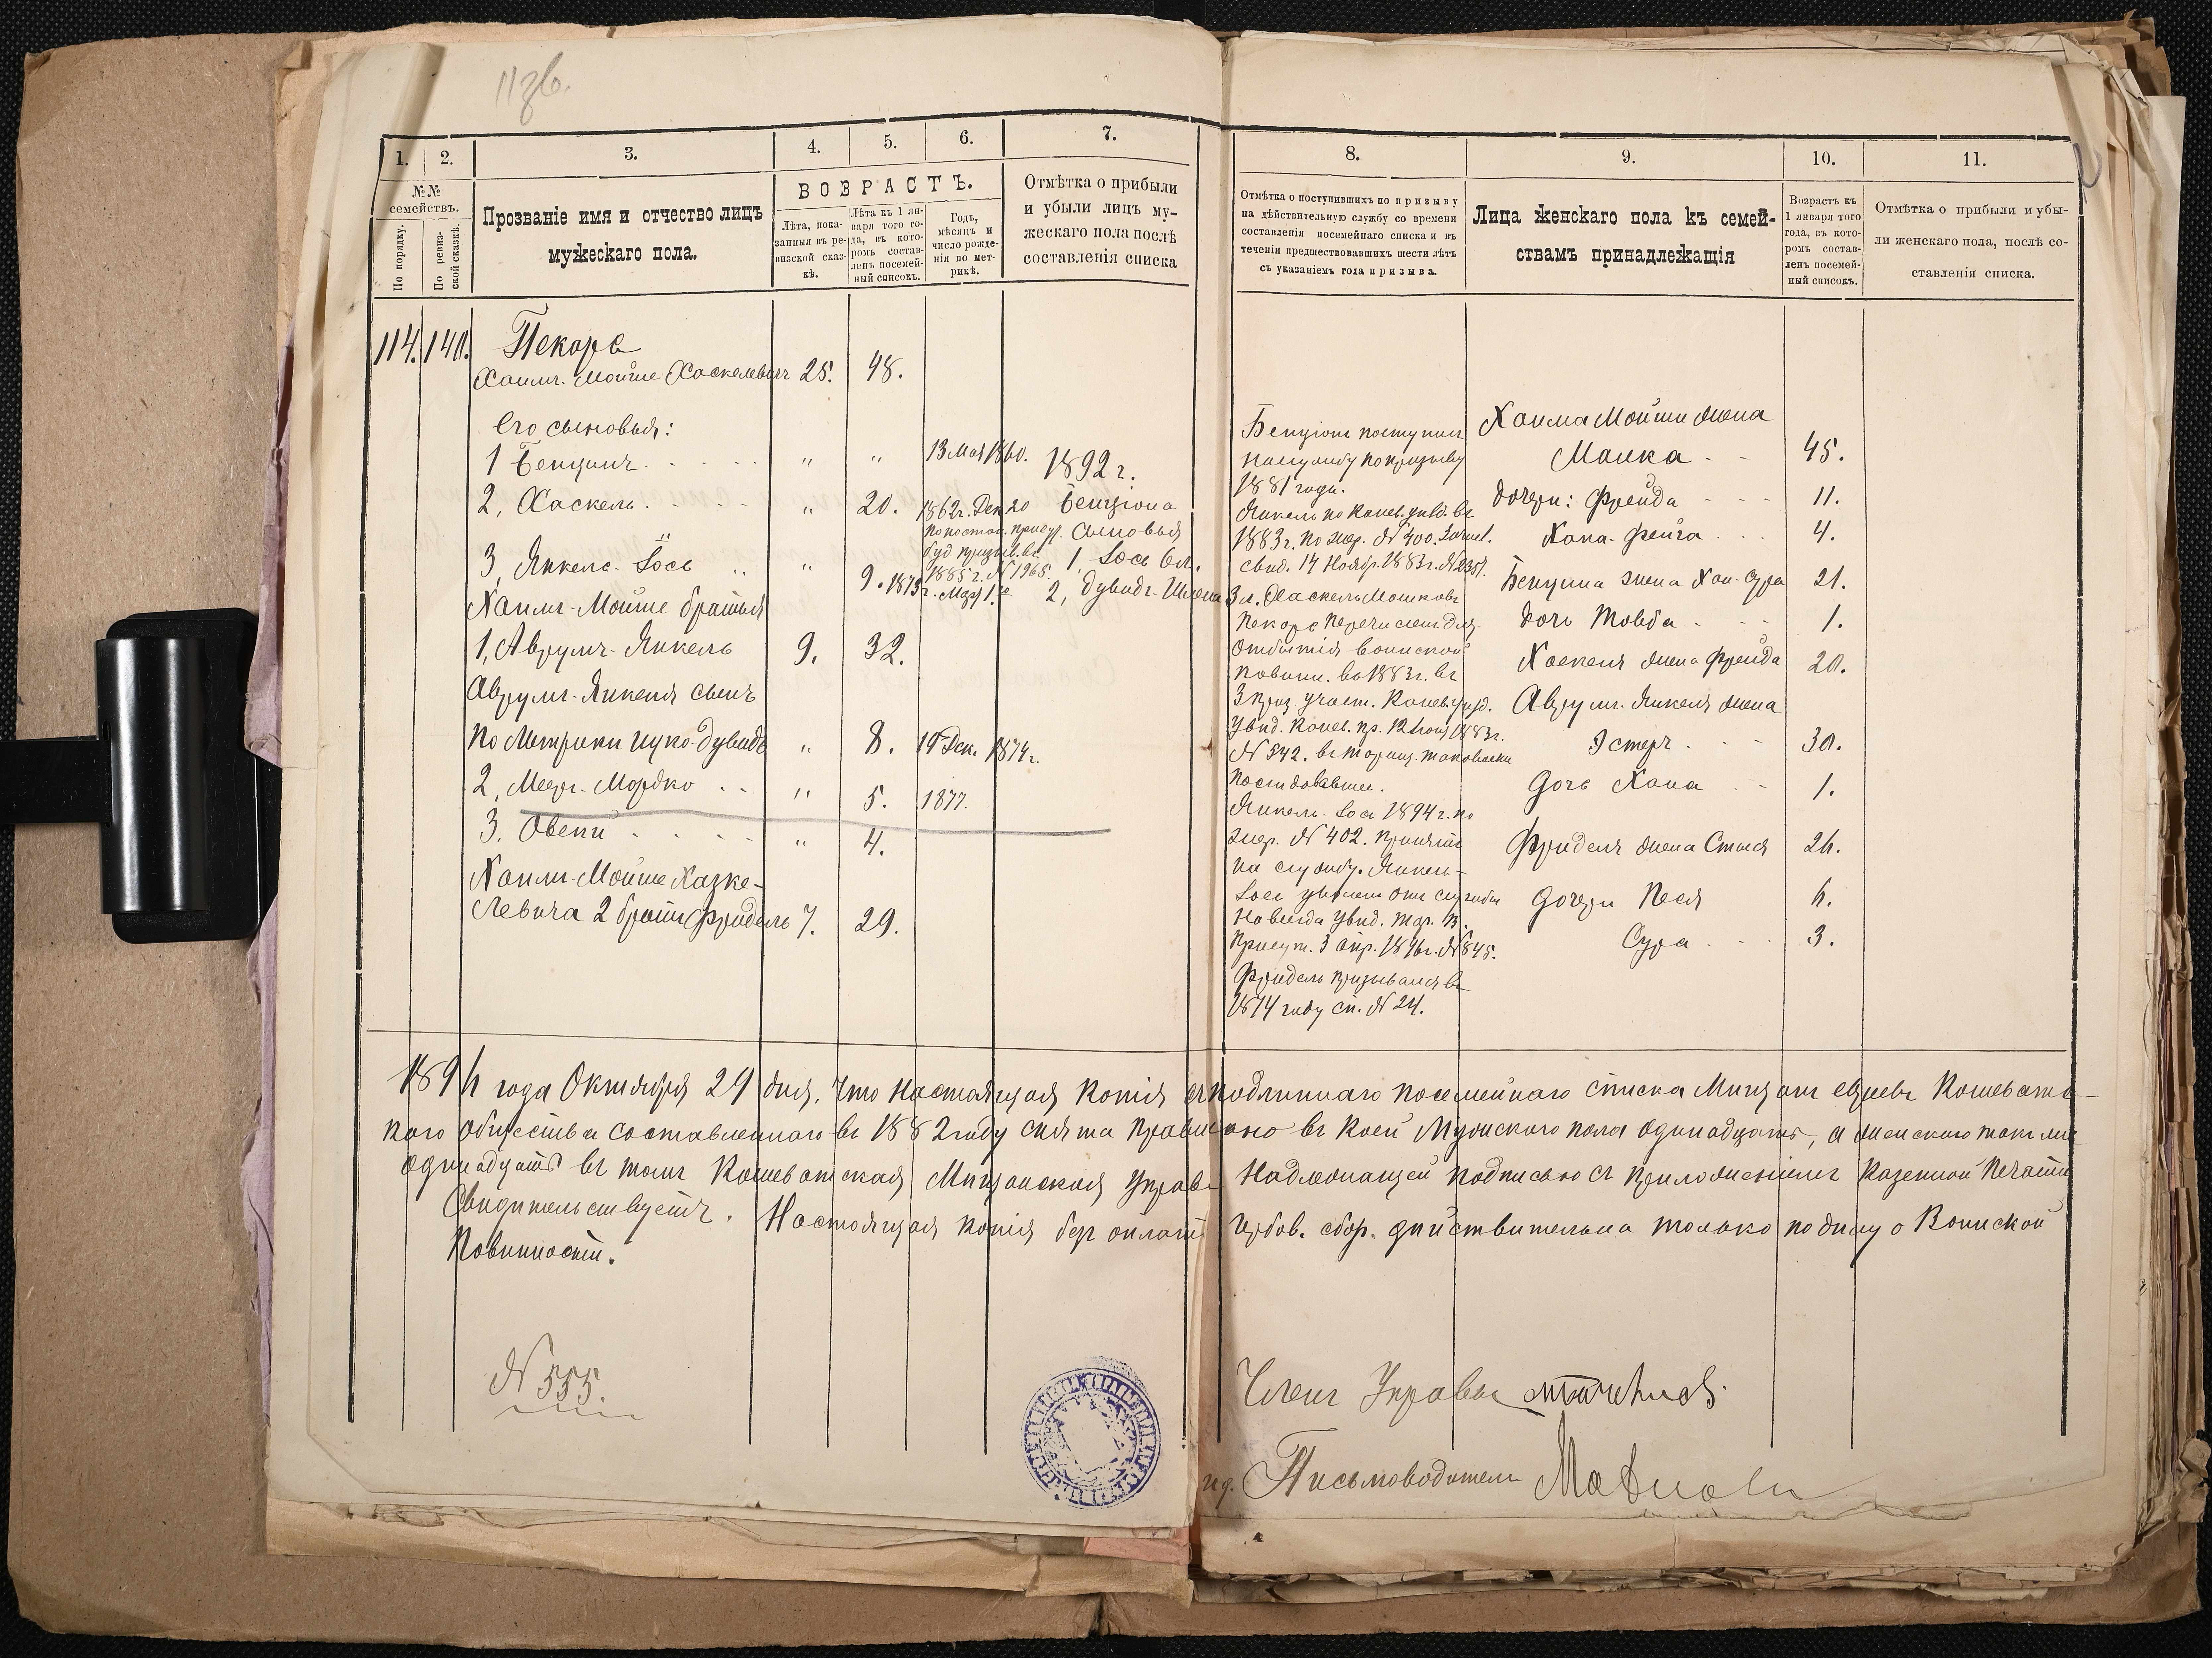 1. 2. 3. 4. 5. 6. 7.
№№ семействъ.
По порядку.
По ревизской сказкѣ.
Прозваніе имя и отчество лицъ
мужескаго пола.
ВОЗРАСТЪ.
Лѣта, пока-
занныя въ ре-
визской сказ-
кѣ.
Лѣта къ 1 ян-
варя того го-
да, въ кото-
ромъ состав-
ленъ посемей-
ный списокъ.
Годъ,
мѣсяцъ и
число рожде-
нія по мет-
рикѣ.
Отмѣтка о прибыли
и убыли лицъ му-
жескаго пола послѣ
составленія списка
114. 140. Пекаръ
Хаимъ-Мойше Хаскелевичъ 25. 48.
Его сыновья:
1 Бенціонъ " " 13 Мая 1860.
2, Хаскель " 20. 1862г. Дек. 20
3, Янкель-Іось " 9. 1873г.
Хаимъ-Мойше братья
1, Аврумъ-Янкель 9. 32.
Аврумъ-Янкеля сынъ
по Метрики Ицко-Дувидъ " 8. 1874г.
2, Меер-Мордко " 5. 1877.
3. Овсей " 4.
Хаимъ-Мойше Хазке-
левича 2 братъ Фридель 7. 29.
1892г.
Бенціона
сыновья
1, Іось 6л.
2, Дувидъ-Шлема 3л.
8. 9. 10. 11.
Отмѣтка о поступившихъ по призыву
на дѣйствительную службу со времени
составленія посемейнаго списка и въ
теченіи предшествовавшихъ шести лѣтъ
съ указаніемъ года призыва.
Лица женскаго пола къ семей-
ствамъ принадлежащія
Возрастъ къ
1 января того
года, въ кото-
ромъ состав-
ленъ посемей-
ный списокъ.
Отмѣтка о прибыли и убы-
ли женскаго пола, послѣ со-
ставленія списка.
Бенціонъ поступилъ
на службу по призыву
1881 года.
Янкель по Канев. уѣзд. въ
1883г. по жер. № 400.
свид. 14 Ноябр. 1883г.
Хаскель Мошковъ
Пекаръ перечисленъ для
отбытія воинской
повинн. въ 1883г. въ
3 приз. участ. Канев. уѣзд.
№ 542.
Янкель-Іось 1894г. по
жер. № 402. принятъ
на службу. Янкель-
Іось уволенъ отъ службы
навсегда увѣд.
Присут. 3 Апр. № 845.
Фридель призывался въ
1874 году сп. № 24.
Хаима Мойши жена
Малка 45.
дочери: Фрейда 11.
Хана-Фейга 4.
Бенціона жена Хая-Сура 21.
дочь Товба 1.
Хаскеля жена Фрейда 20.
Аврумъ-Янкеля жена
Эстеръ 30.
дочь Хана 1.
Фриделя жена Стыся 26.
дочери Песя 6.
Сура 3.
1896 года Октября 29 дня. Что настоящая копія съ подлиннаго посемейнаго списка Мѣщанъ евреевъ Кошеват-
скаго общества составленнаго въ 1882 году снята правильно въ коей Мужескаго пола одинадцать, а женскаго также
одинадцать въ томъ Кошеватская Мѣщанская Управа надлежащей подписью съ приложеніемъ казенной печати
Свидѣтельствуетъ. Настоящая копія безъ оплаты гербов. сбор. дѣйствительна только по дѣлу о Воинской
Повинности.
№ 555.
Членъ Управы
Письмоводитель